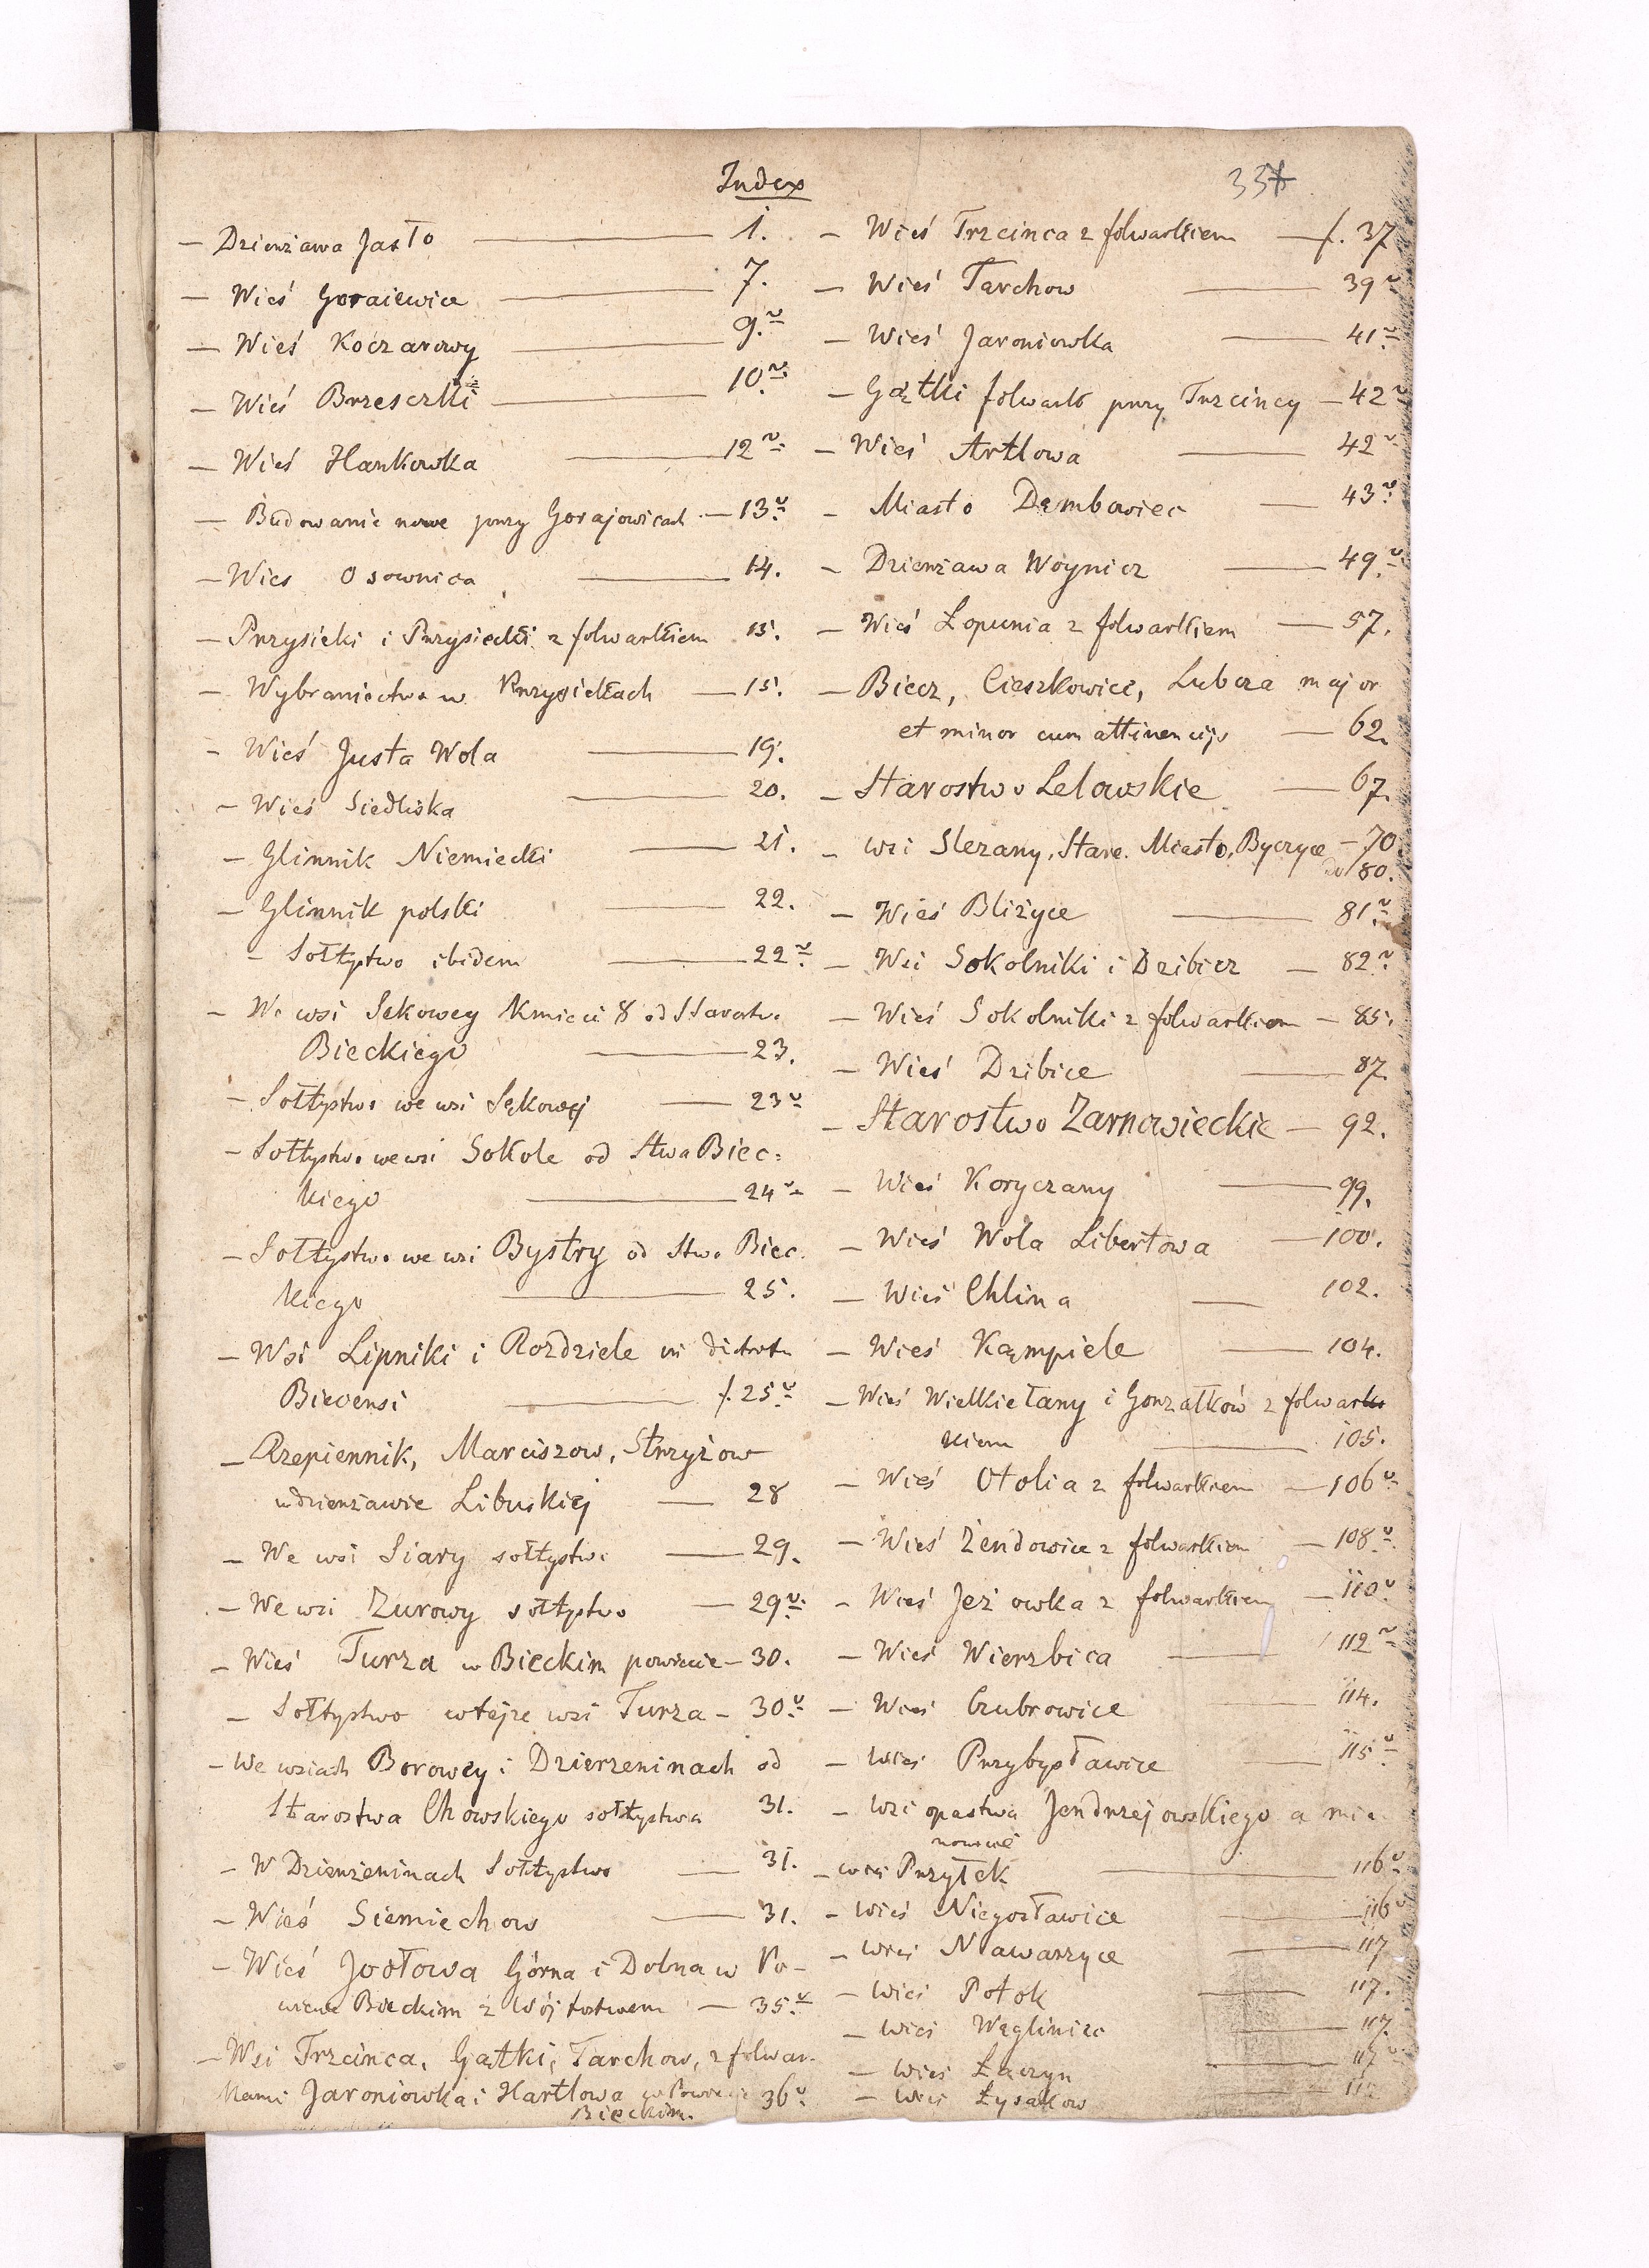 Index
337
— Dzierżawa Jasło — 1.
— Wieś Goraiewice — 7.
— Wieś Koczarowy — 9.v
— Wieś Brzesczki — 10.v
— Wieś Hankowka — 12v
— Budowanie nowe przy Gorajowicach — 13v
— Wies Osownica — 14.
— Przysieki i Przysieczki z folwarkiem 15.
— Wybraniectwo w Przysiekach — 15.
— Wieś Justa Wola — 19.
— Wieś Siedliska — 20.
— Glinnik Niemiecki — 21.
— Glinnik polski — 22.
— Sołtystwo ibidem — 22v
— We wsi Sękowey Kmieci 8 od Starostwa
Bieckiego — 23.
— Sołtystwo we wsi Sękowej — 23v
— Sołtystwo we wsi Sokole od Stwa Biec=
kiego — 24v
— Sołtystwo we wsi Bystry od Stwa Biec.
kiego — 25.
— Wsi Lipniki i Rozdziele in districtu
Biecensi — f. 25v
— Rzepiennik, Marciszow, Strzyżow
w dzierżawie Libuskiej — 28
— We wsi Siary sołtystwo — 29.
— We wsi Zurowy sołtystwo — 29v.
— Wieś Turza w Bieckim powiecie — 30.
— Sołtystwo w tejże wsi Turza — 30v
— We wsiach Borowey i Dzierzeninach od
Starostwa Chowskiego sołtystwa 31.
— W Dzierżeninach Sołtystwo — 31.
— Wieś Siemiechow — 31.
— Wieś Jodłowa Górna i Dolna w Po-
wiecie Bieckim z Wójtostwem — 35v
— Wsi Trzcinca, Gątki, Tarchow, z folwar-
kami Jaroniowka i Hartlowa w Powiecie 36v
Bieckim.
— Wieś Trzcinca z folwarkiem — f. 37
— Wieś Tarchow — 39v
— Wieś Jaroniowka — 41v
— Gątki folwark przy Trzcincy — 42v
— Wieś Artlowa — 42v
— Miasto Dembowiec — 43v
— Dzierżawa Woynicz — 49v
— Wieś Łopunia z folwarkiem — 57.
— Biecz, Cieszkowice, Lubcza major
et minor cum attinencijs — 62.
— Starostwo Lelowskie — 67.
— wsi Slezany, Stare Miasto, Byczyce — 70.
do 80.
— Wieś Bliżyce — 81v
— Wsi Sokolniki i Dzibicz — 82v
— Wieś Sokolniki z folwarkiem — 85.
— Wieś Dzibice — 87.
— Starostwo Zarnowieckie — 92.
— Wieś Koryczany — 99.
— Wieś Wola Libertowa — 100.
— Wieś Chlina — 102.
— Wieś Kąmpiele — 104.
— Wieś Wielkietany i Gorzałków z folwar
kiem — 105.
— Wieś Otolia z folwarkiem — 106v
— Wieś Żendowice z folwarkiem — 108v
— Wieś Jeżowka z folwarkiem — 110v
— Wieś Wierzbica — 112v
— Wieś Czubrowice — 114.
— Wieś Przybysławice — 115v
— Wsi opactwa Jendrzejowskiego a mia
nowicie
— wsi Przyłek — 116v
— wieś Niegosławice — 116v
— wieś Nawarzyce — 117
— wieś Potok — 117.
— wieś Węgliniec — 117.
— wieś Łaczyn — 117
— wieś Łysakow — 117